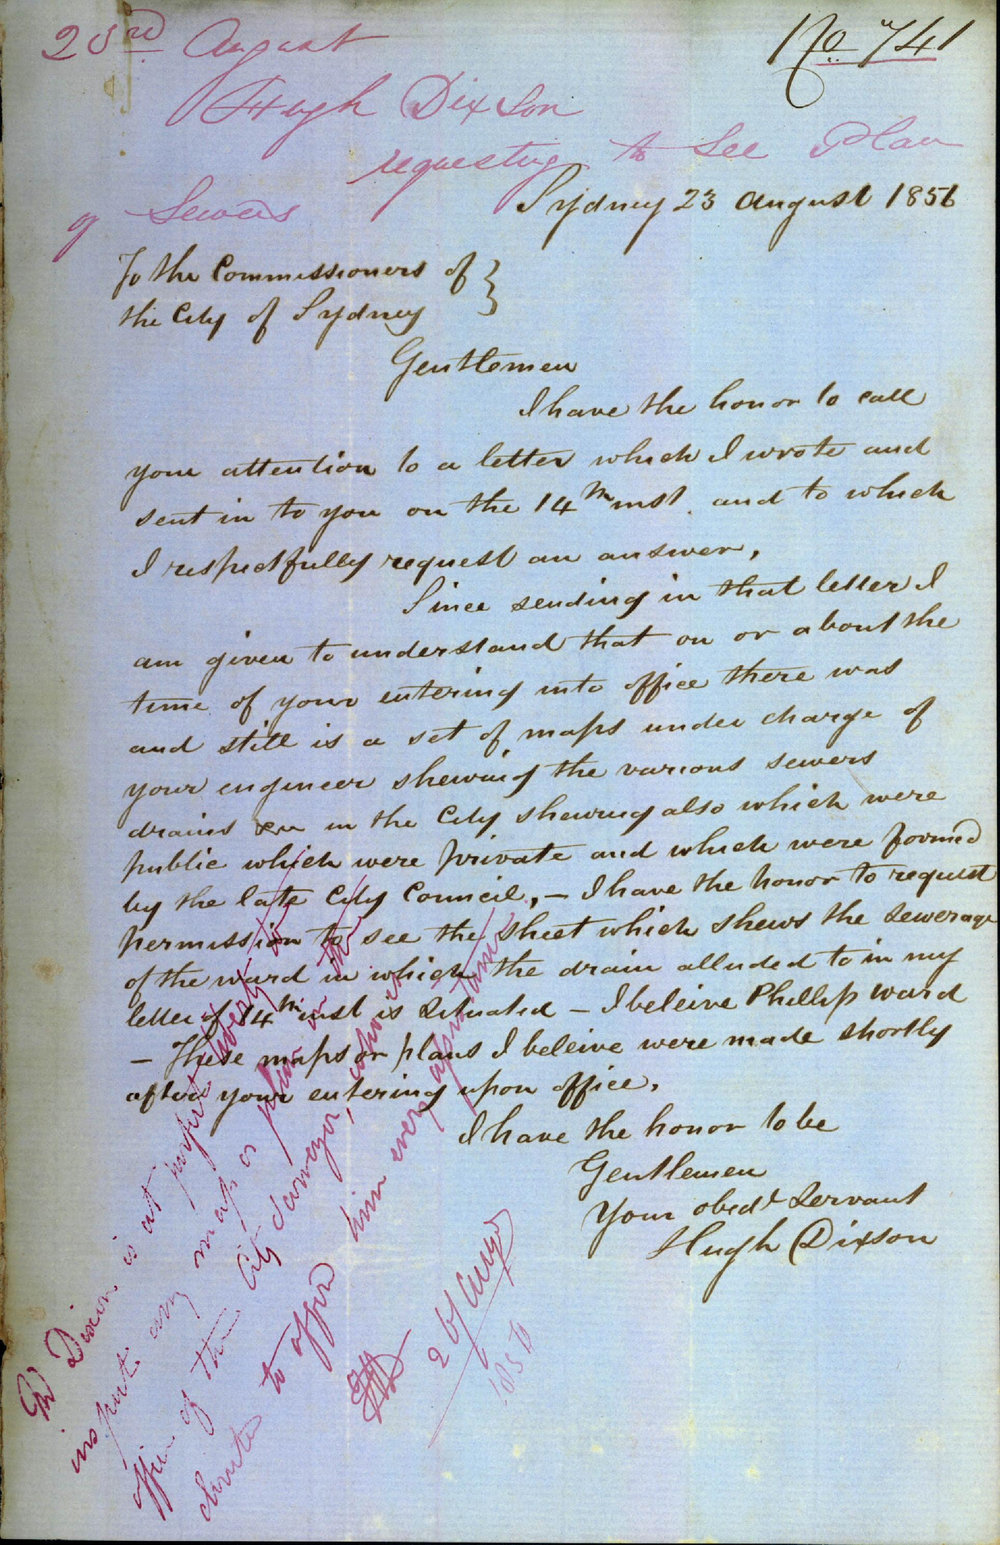 No 741
23rd August
Hugh Dixson
requesting to see Plan
of Sewers
Sydney 23 August 1856
To the Commissioners of
the City of Sydney
Gentlemen
I have the honor to call
your attention to a letter which I wrote and
sent in to you on the 14th inst. and to which
I respectfully request an answer,
Since sending in that letter I
am given to understand that on or about the
time of your entering into office there was
and still is a set of maps under charge of
your engineer shewing the various sewers
drains &c in the City shewing also which were
public which were private and which were formed
by the late City Council, – I have the honor to request
permission to see the sheet which shews the sewerage
of the ward in which the drain alluded to in my
letter of 14th inst is situated – I beleive Phillip ward
– These maps or plans I beleive were made shortly
after your entering upon office.
I have the honor to be
Gentlemen
Your obedt Servant
Hugh Dixson
Mr Dixson is at perfect liberty to
inspect any map or plan in the
office of the City Surveyor, who is
directed to afford him every opportunity
26 Augt
1856